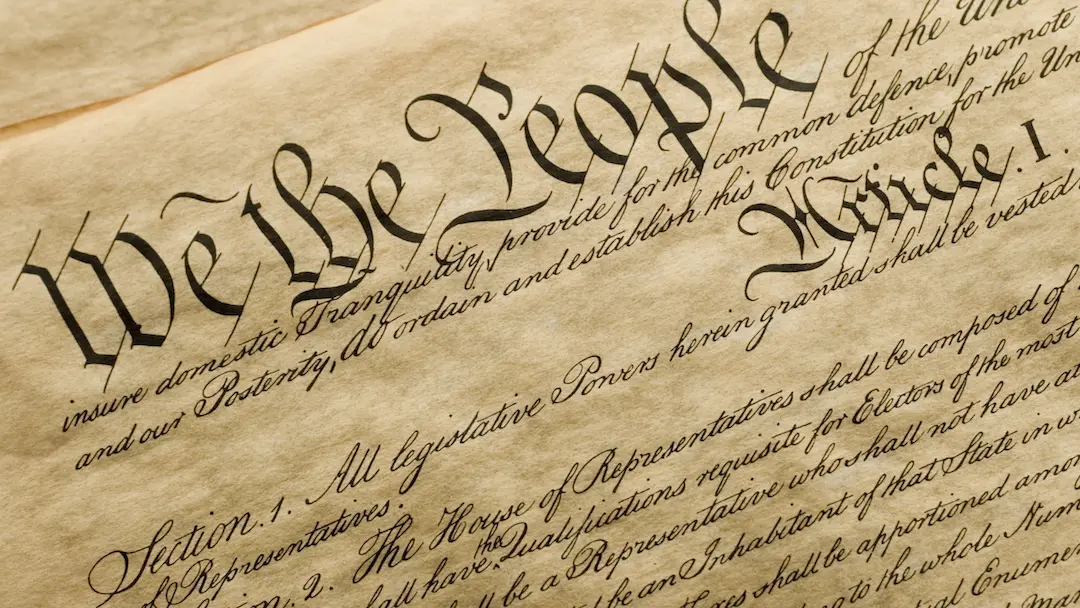 We the People of the Uni
insure domestic Tranquility, provide for the common defence, promote
and our Posterity, do ordain and establish this Constitution for the Un
Article. I.
Section. 1. All legislative Powers herein granted shall be vested
of Representatives.
ion. 2. The House of Representatives shall be composed of
all have the Qualifications requisite for Electors of the most
ll be a Representative who shall not have at
be an Inhabitant of that State in w
shall be apportioned amon
to the whole Num
Enumer